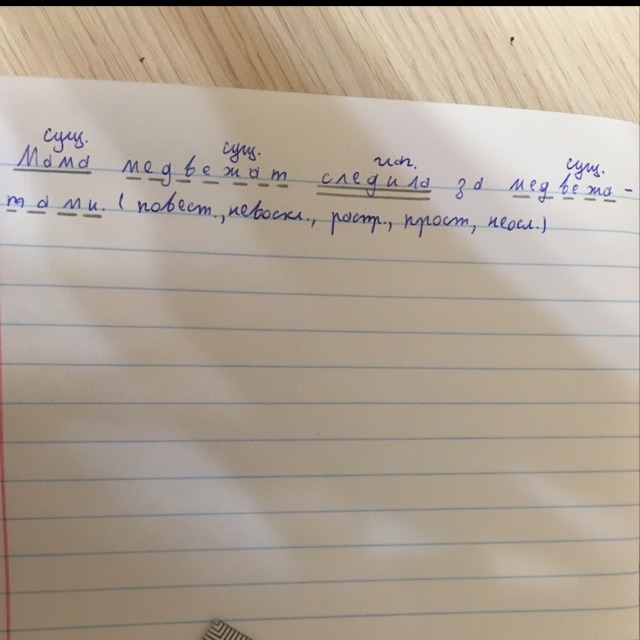 сущ. сущ. гл. сущ.
Мама медвежат следила за медвежа-
тами. (повест., невоскл., распр., прост, неосл.)